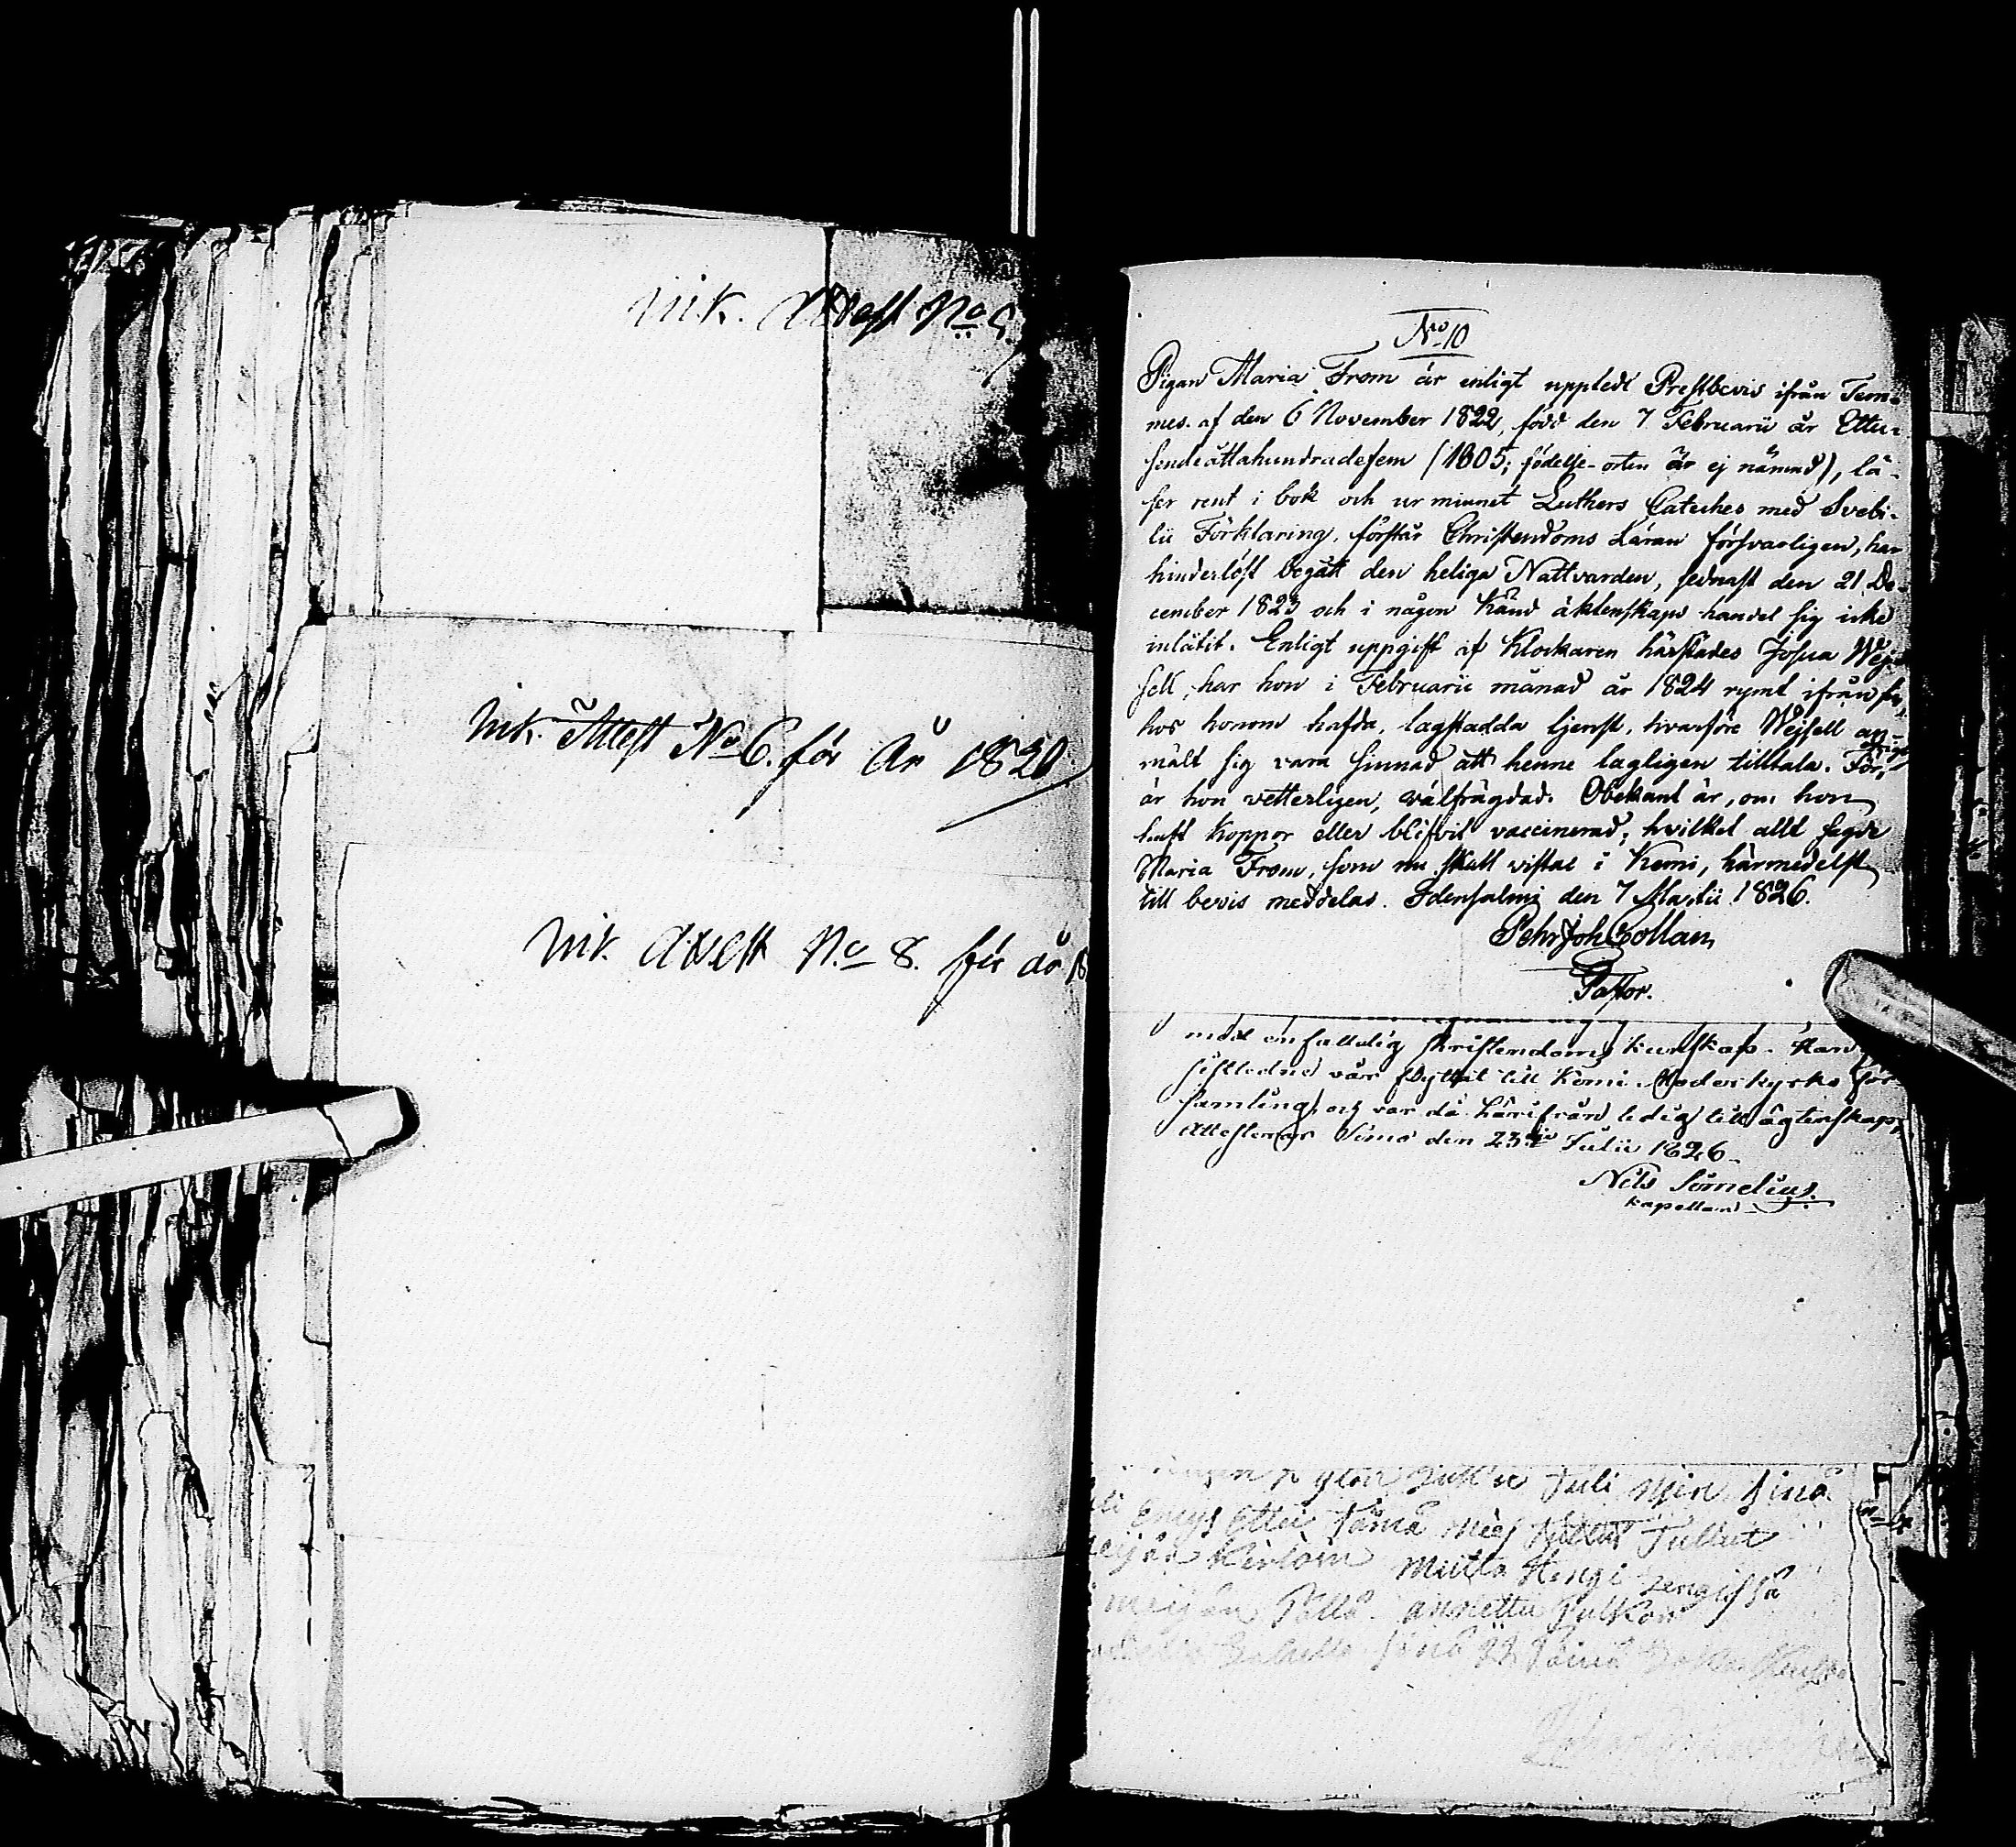 ink. Attest No 5
ink. Attest No 6. för År 1820
ink. Attest No 8. för år 18
No 10
Pigan Maria From är enligt uppledt Prestbevis ifrån Tem-
mes. af den 6 November 1822, född den 7 Februarii år Ettu-
sendeåttahundradefem (1805; födelse-orten är ej nämnd), lä-
ser rent i bok och ur minnet Luthers Cateches med Svebi-
lii Förklaring, förstår Christendoms Läran försvarligen, har
hinderlöst begått den heliga Nattvarden, sednast den 21 De-
cember 1823 och i någon känd äktenskaps handel sig icke
inlåtit. Enligt uppgift af Klockaren härstädes Josua Wej-
sell, har hon i Februarii månad år 1824 rymt ifrån sin
hos honom hafda, lagstadda tjenst, hvarföre Wejsell an-
mält sig vara sinnad att henne lagligen tilltala. För öfrigt
är hon vetterligen, välfrägdad. Obekant är, om hon
haft Koppor eller blifvit vaccinerad; hvilket allt sagde
Maria From, som nu skall vistas i Kemi, härmedelst
till bevis meddelas. Idensalmi den 7 Martii 1826.
Pehr Joh Collan,
Pastor.
med enfalldig kristendoms kunskap. Han
sistledne vår flyttat till Kemi Moderkyrko för
samling, och var då härifrån ledig till ägtenskap,
Attesteras Simo den 23die Julii 1826.
Nils Sumelius.
Kapellan
Juli mjen sinä
emys ettei tämä mies Tullut
Kirloin mutta Hengi